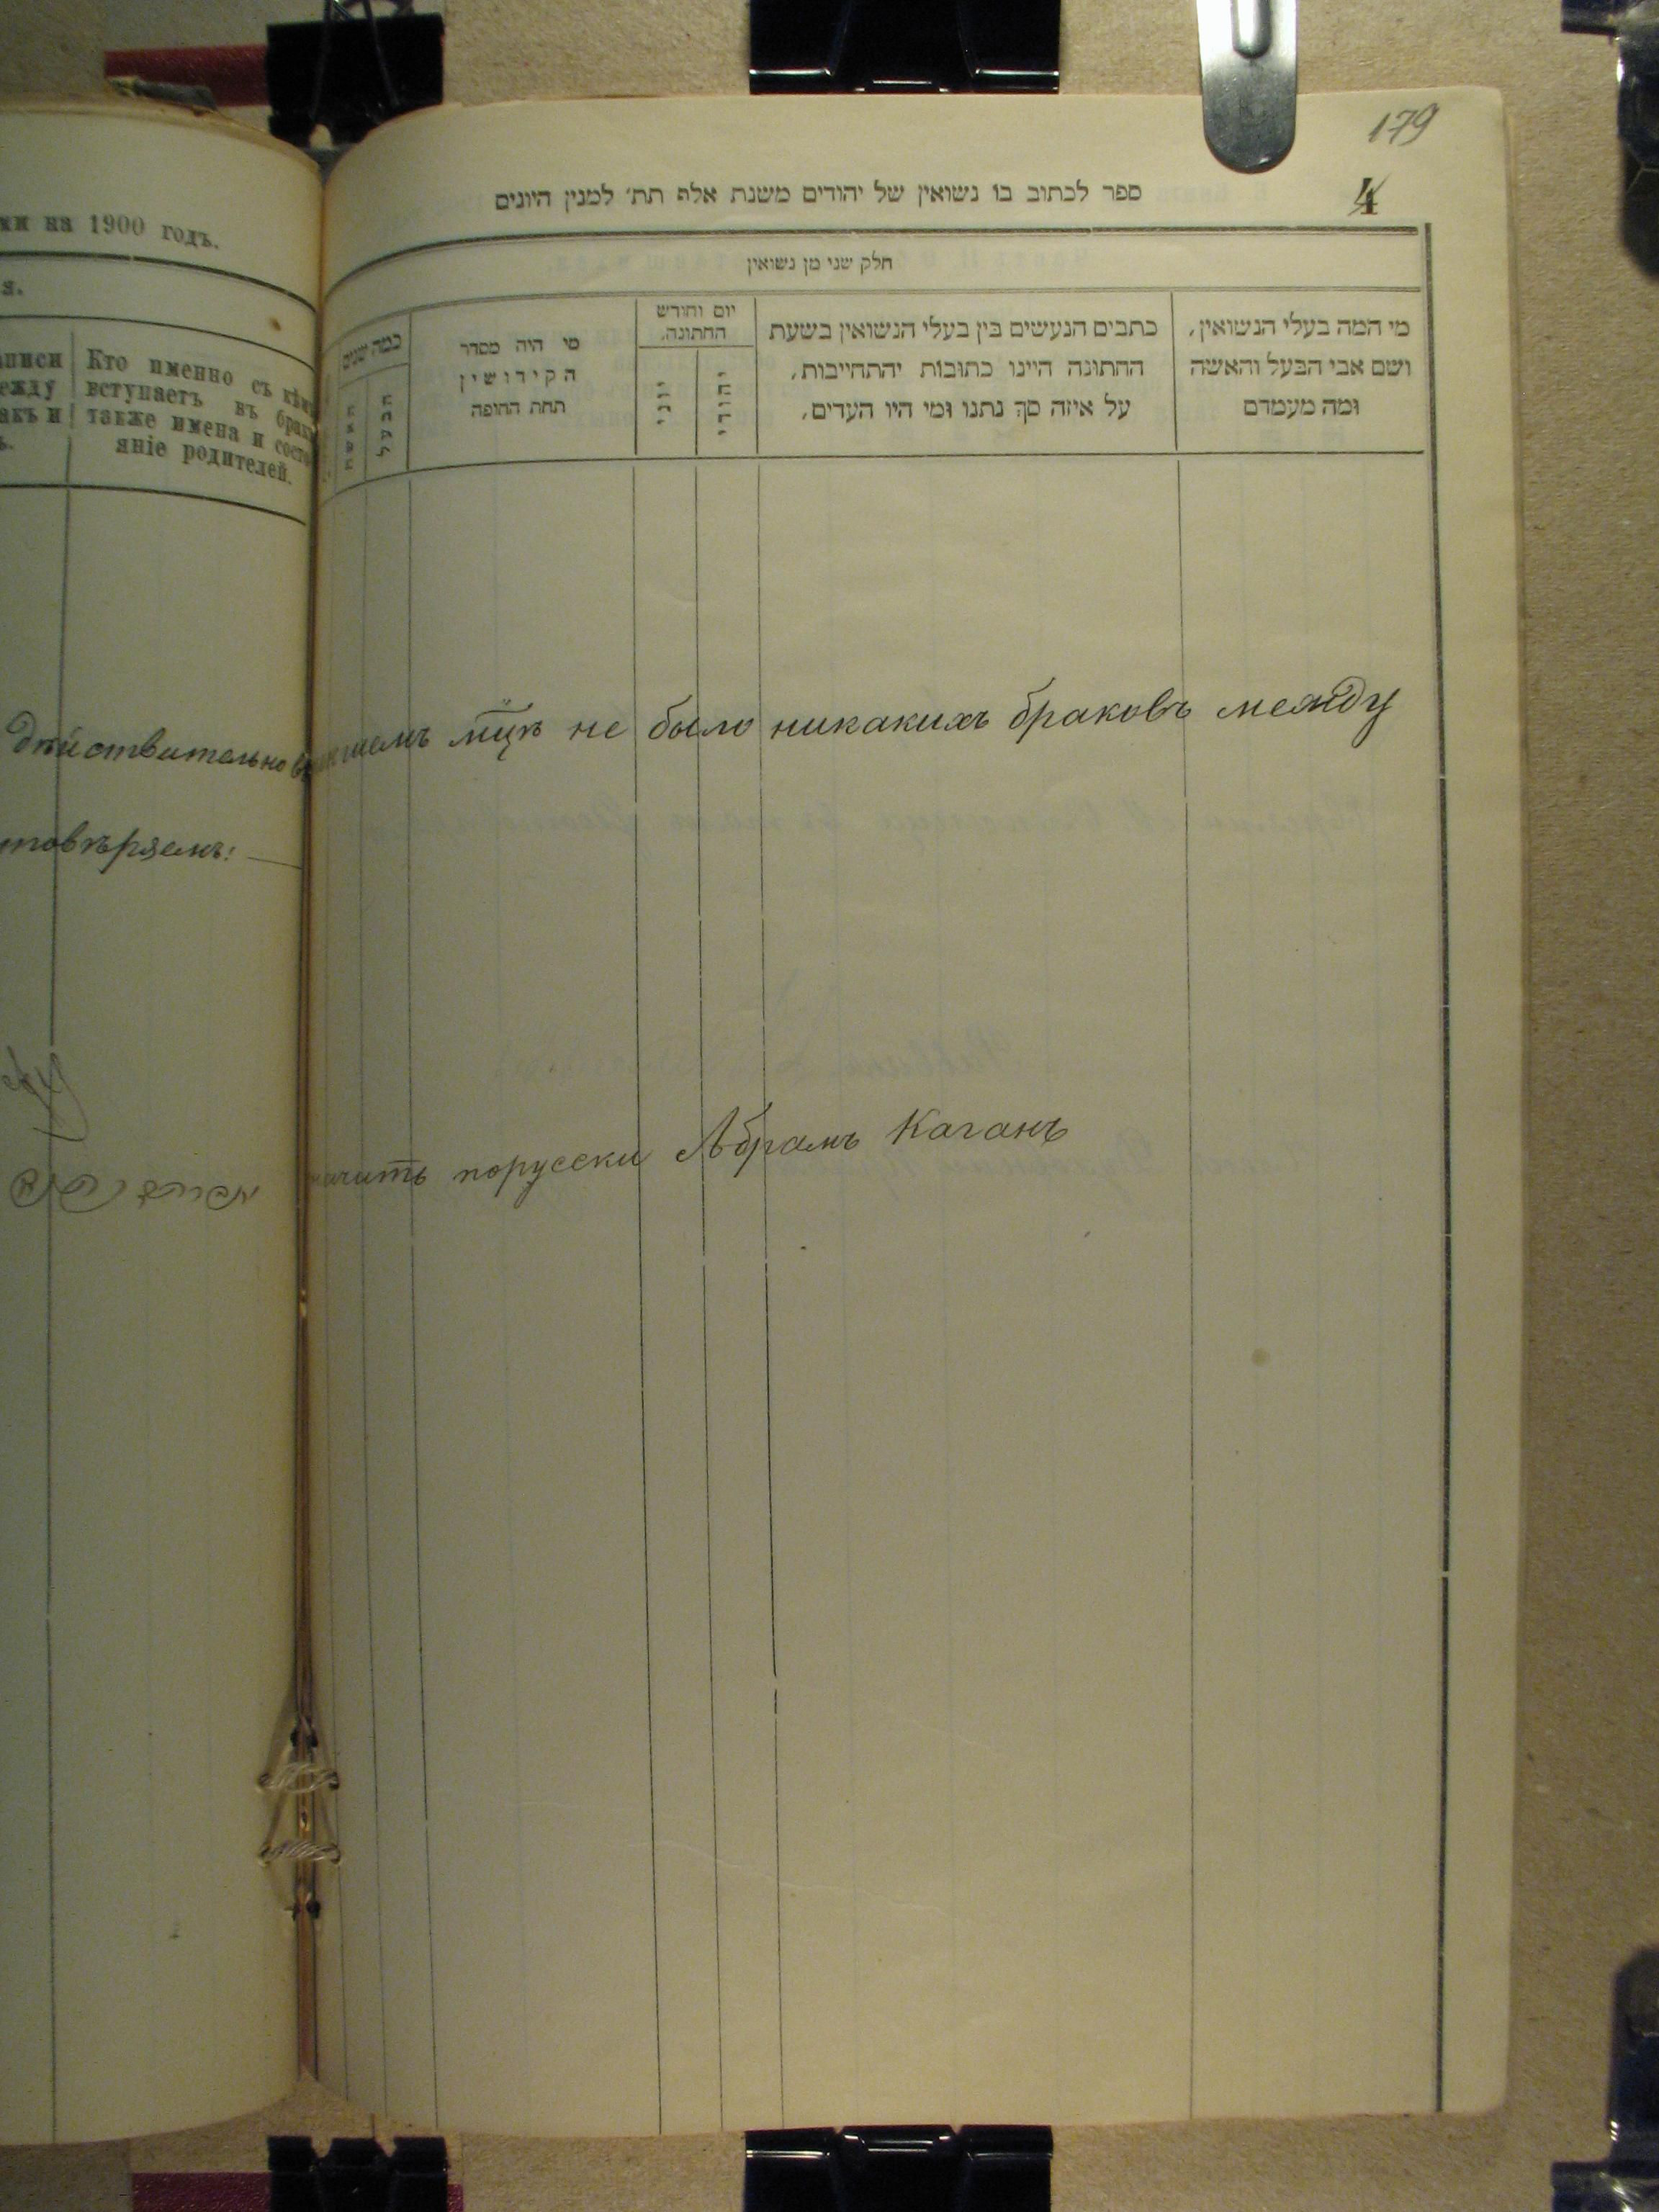 179
4
ки на 1900 годъ.
я.
аписи
ежду
акъ и
ъ.
Кто именно съ кѣмъ
вступаетъ въ бракъ
также имена и состо
яніе родителей.
ספר לכתוב בו נשואין של יהודים משנת אלף תת׳ למנין היונים
חלק שני מן נשואין
מי המה בעלי הנשואין,
ושם אבי הבעל והאשה
ומה מעמדם
כתבים הנעשים בין בעלי הנשואין בשעת
החתונה היינו כתובות יהתחייבות,
על איזה סך נתנו ומי היו העדים,
יום וחודש
החתונה.
יהודי
יוני
מי היה מסדר
הקידושין
תחת החופה
כמה שנים
הבעל
האשה
Дѣйствительно въ мѣцѣ не было никакихъ браковъ между
товѣряемъ:
порусски Абрамъ Каганъ